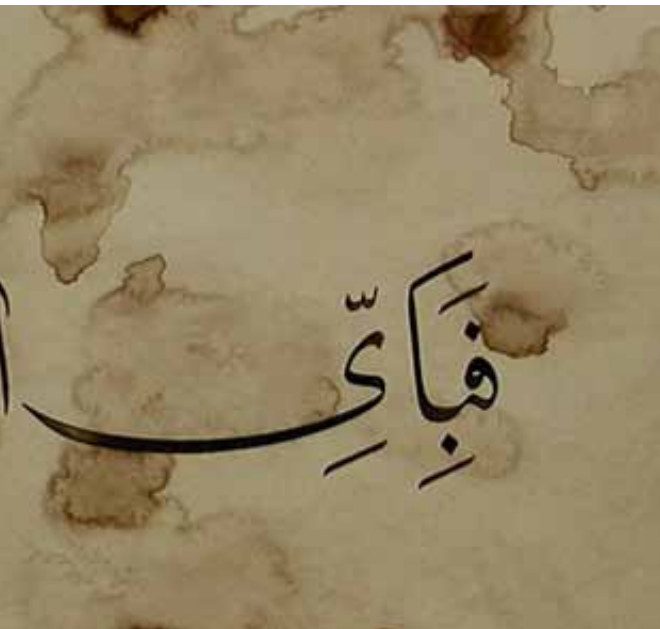 فَبِأَيِّ